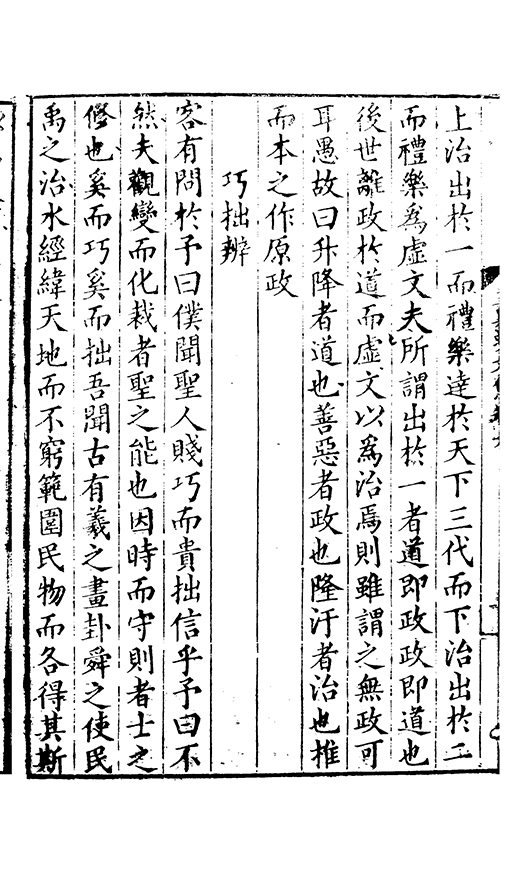 上治出於一而禮樂達於天下三代而下治出於二
而禮樂為虛文夫所謂出於一者道即政政即道也
後世離政於道而虛文以為治焉則雖謂之無政可
耳愚故曰升降者道也善惡者政也隆汙者治也推
而本之作原政
巧拙辨
客有問於予曰僕聞聖人賤巧而貴拙信乎予曰不
然夫觀變而化裁者聖之能也因時而守則者士之
修也奚而巧奚而拙吾聞古有羲之畫卦舜之使民
禹之治水經緯天地而不窮範圍民物而各得其斯